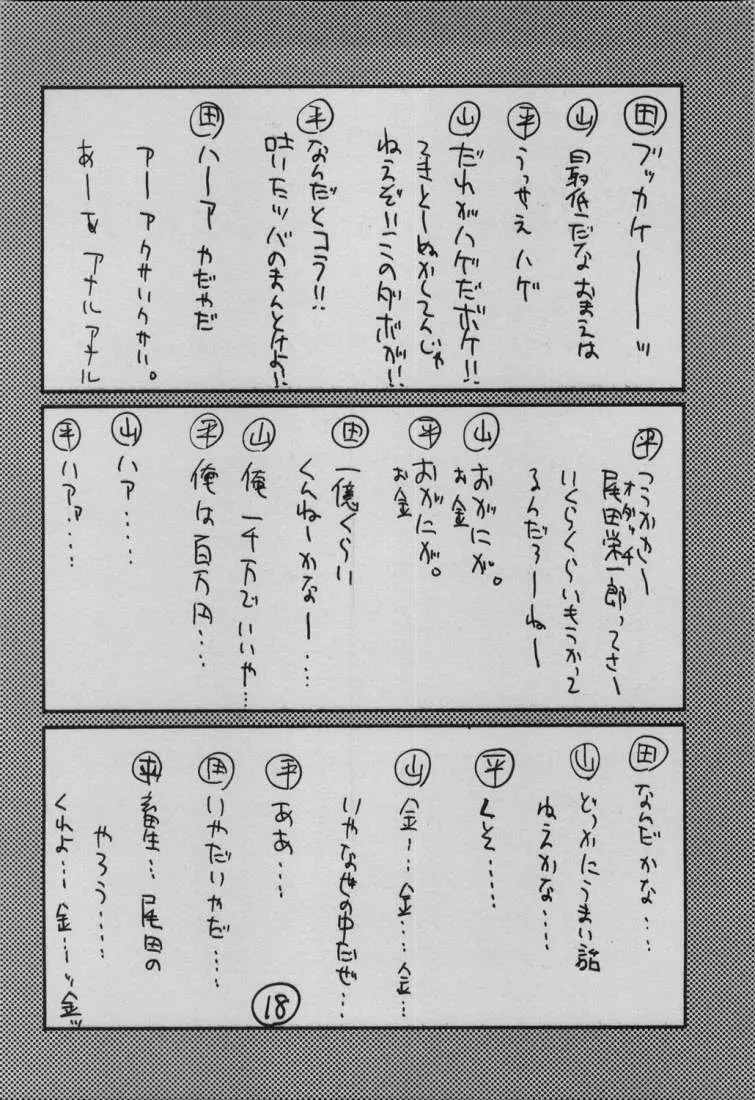 田 ブッカケーーーッ
山 最低だなおまえは
平 うっせえハゲ
山 だれがハゲだボケ!!
てきとーぬかしてんじゃ
ねえぞ!!このダボが!!
平 なんだとコラ!!
吐いたツバのまんとけよ!!
田 ハーア やだやだ
アーアクサいクサい。
あーあ アナル アナル
平 つうかさー
尾田栄一郎ってさー
オダッチ
いくらくらいもうかって
るんだろーねー
山 おがにが。
お金
平 おがにが。
お金
田 一億くらい
くんねーかなー....
山 俺一千万でいいや...
平 俺は百万円....
山 ハァ......
平 ハァァ.....
田 なんだかな....
山 どっかにうまい話
ねえかな.....
平 くそ.....
山 金...金...金...
いやなぜの中だぜ...
平 ああ....
田 いやだいやだ....
畜生... 尾田の
やろう.....
くんよ... 金...ッ金ッ
18